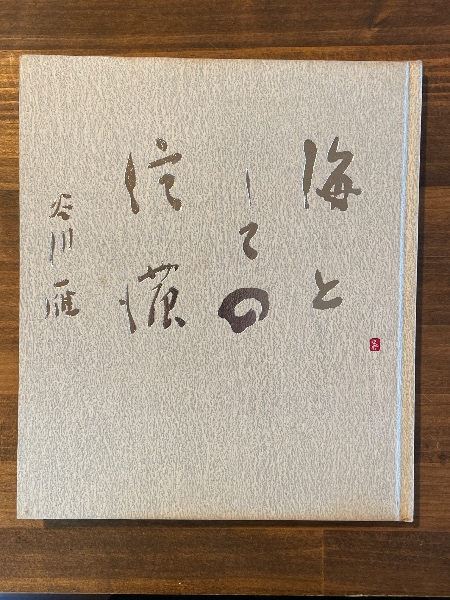 海と
しての
信濃
谷川雁